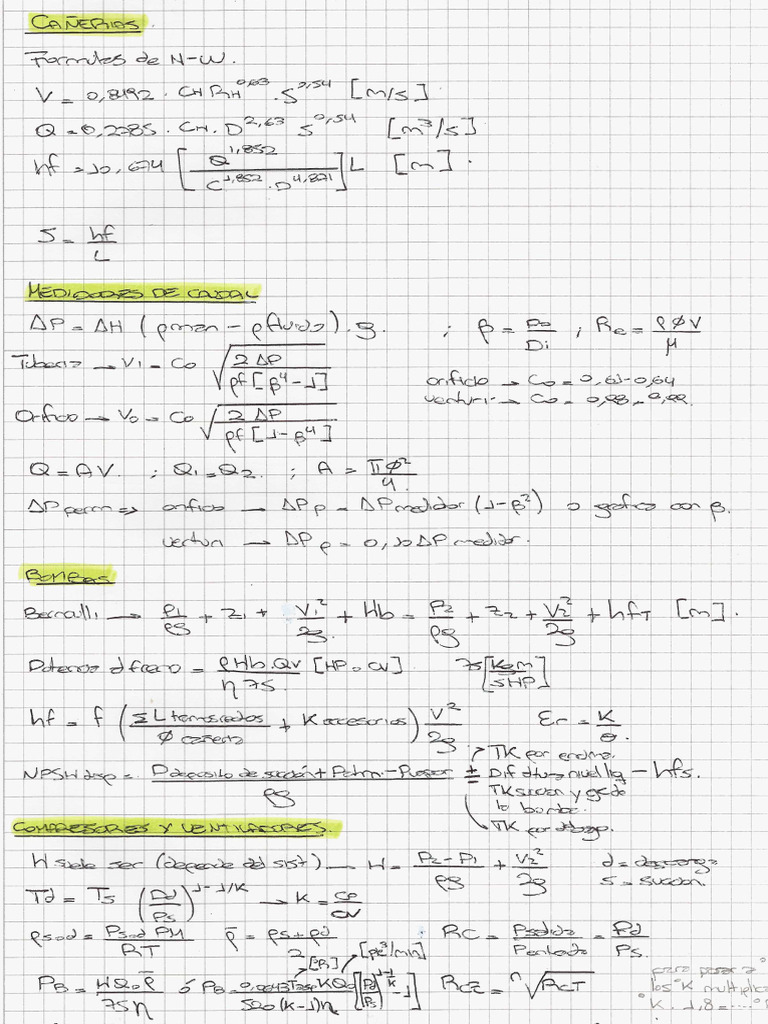 CAÑERIAS.
Formulas de H-W.
V = 0,8492 . CH RH^0,63 . S^0,54 [m/s]
Q = 0,2785 . CH . D^2,63 S^0,54 [m³/s]
hf = 10,674 [Q^1,852 / C^1,852 . D^4,871] L [m].
S = hf / L
MEDIDORES DE CAUDAL
ΔP = ΔH (ρman - ρfluido) . g. ; β = Do / Di ; Re = ρ ø V / μ
Tuberia → V1 = Co √(2 ΔP / ρf [β⁴ - 1])
orificio → Co = 0,61-0,64
venturi → Co = 0,98-0,99.
Orificio → Vo = Co √(2 ΔP / ρf [1 - β⁴])
Q = A V ; Q1 = Q2. ; A = π ø² / 4.
ΔP perm ⇒ orificio → ΔPp = ΔP medidor (1-β²) o grafico con β.
venturi → ΔPp = 0,10 ΔP medidor.
BOMBAS
Bernoulli → P1/ρg + z1 + V1²/2g + Hb = P2/ρg + z2 + V2²/2g + hfT [m].
Potencia al freno = ρ Hb . Qv / η 75. [HP o CV] 75 [Kgm / s HP]
hf = f (Σ L tramos rectos / ø cañeria + K accesorios) V²/2g Er = K / ø.
TK por encima.
NPSH disp = P deposito de succión + Patm - Pvapor / ρg ± Dif altura nivel liq - hfs.
TK succion y eje de
la bomba.
TK por debajo.
COMPRESORES Y VENTILADORES.
H suele ser (depende del sist) → H = P2 - P1 / ρg + V2² / 2g d = descarga
s = succion.
Td = Ts (Pd / Ps)^1-1/K → K = CP / CV
ρs o d = Ps o d PM / RT ρ̄ = ρs + ρd / 2 RC = Psalida / Pentrada = Pd / Ps.
[°R] [pie³/min]
PB = H Qo ρ̄ / 75 η ó PB = 0,0643 Ts K Qo / 520 (K-1) η [(Pd / Ps)^1-1/K - 1] RCE = ⁿ√RCT
para pasar a
los °K multiplica
°K . 1,8 = ---- °